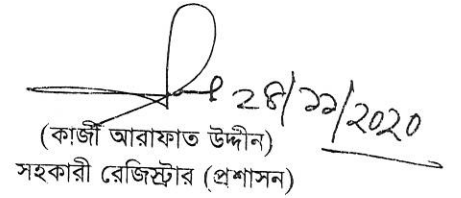 ২৪/১১/২০২০
(কাজী আরাফাত উদ্দীন)
সহকারী রেজিস্ট্রার (প্রশাসন)